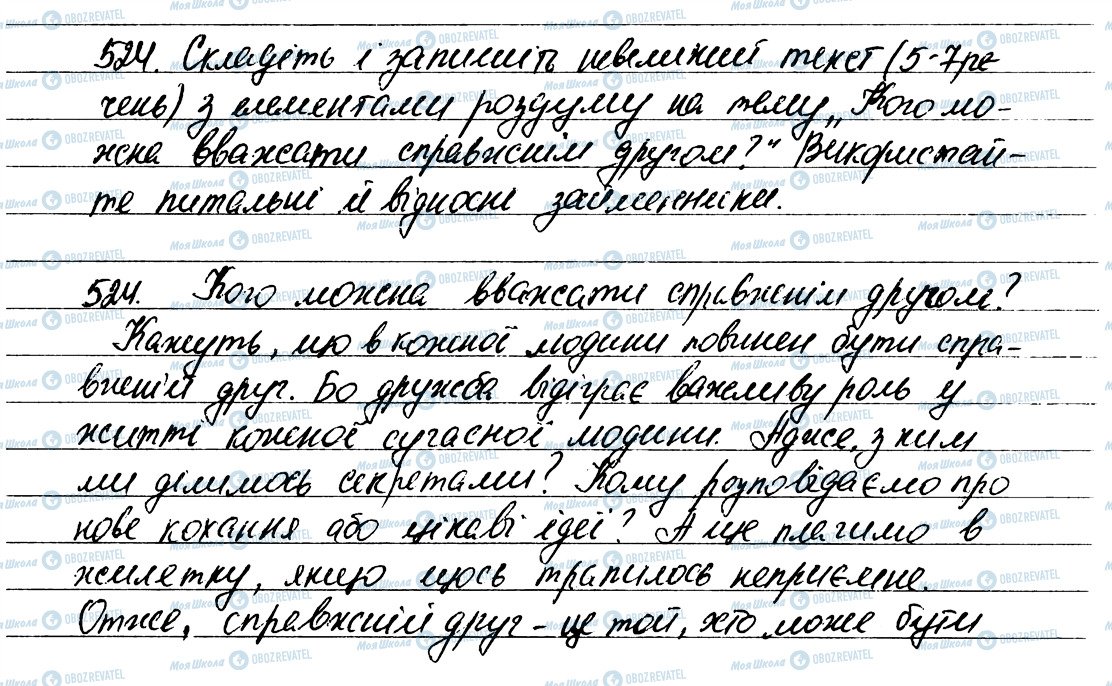 524. Складіть і запишіть невеликий текст (5-7 ре
чень) з елементами роздуму на тему „Кого мо-
жна вважати справжнім другом?" Використай-
те питальні й відносні займенники.
524. Кого можна вважати справжнім другом?
Кажуть, що в кожної людини повинен бути спра-
вжній друг. Бо дружба відіграє важливу роль у
житті кожної сучасної людини. Адже, з ким
ми ділимось секретами? Кому розповідаємо про
нове кохання або цікаві ідеї? А ще плачимо в
жилетку, якщо щось трапилось неприємне.
Отже, справжній друг – це той, хто може бути